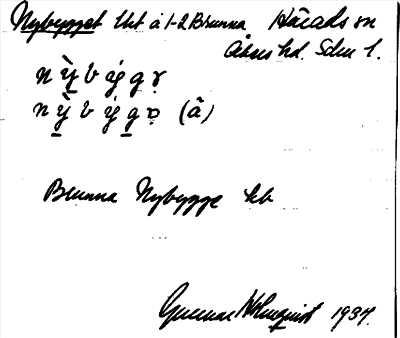 Nybygget lht å 1-2 Brunna Håcads sn
Åkers hd. Sdm l.
n ỳ b ý g ɤ
n ỳ b ý g ɔ (å)
Brunna Nybygge kb
Gunnar Holmquist 1937.